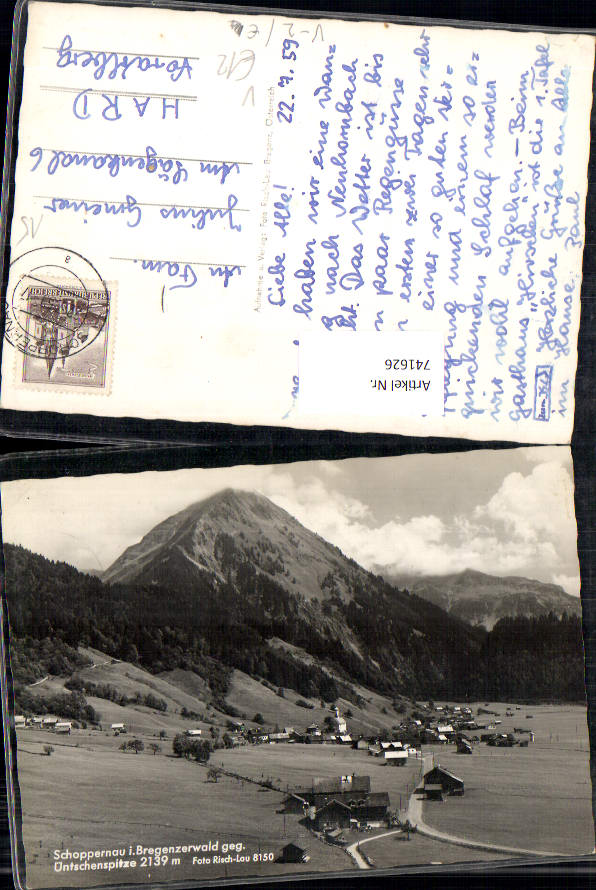 22. 7. 59
Liebe Alle!
haben wir eine Wan-
nach Neuhornbach
Das Wetter ist bis
paar Regengüsse
ersten zwei Tagen sehr
einer so guten Ver-
pflegung und einem so er-
quickenden Schlaf werden
wir wohl aufgehen. – Beim
Gasthaus "Hirschen" ist die 1. Tafel
Herzliche Grüße an Alle
im Hause. Paul
Aufnahme u. Verlag: Foto Risch-Lau, Bregenz, Österreich
V-2/E
E12
V
15
An Fam.
Julius Gmeiner
Am Lägenkanal 6
HARD
Vorarlberg
REPUBLIK ÖSTERREICH
Artikel Nr.
741626
Schoppernau i.Bregenzerwald geg.
Üntschenspitze 2139 m Foto Risch-Lau 8150